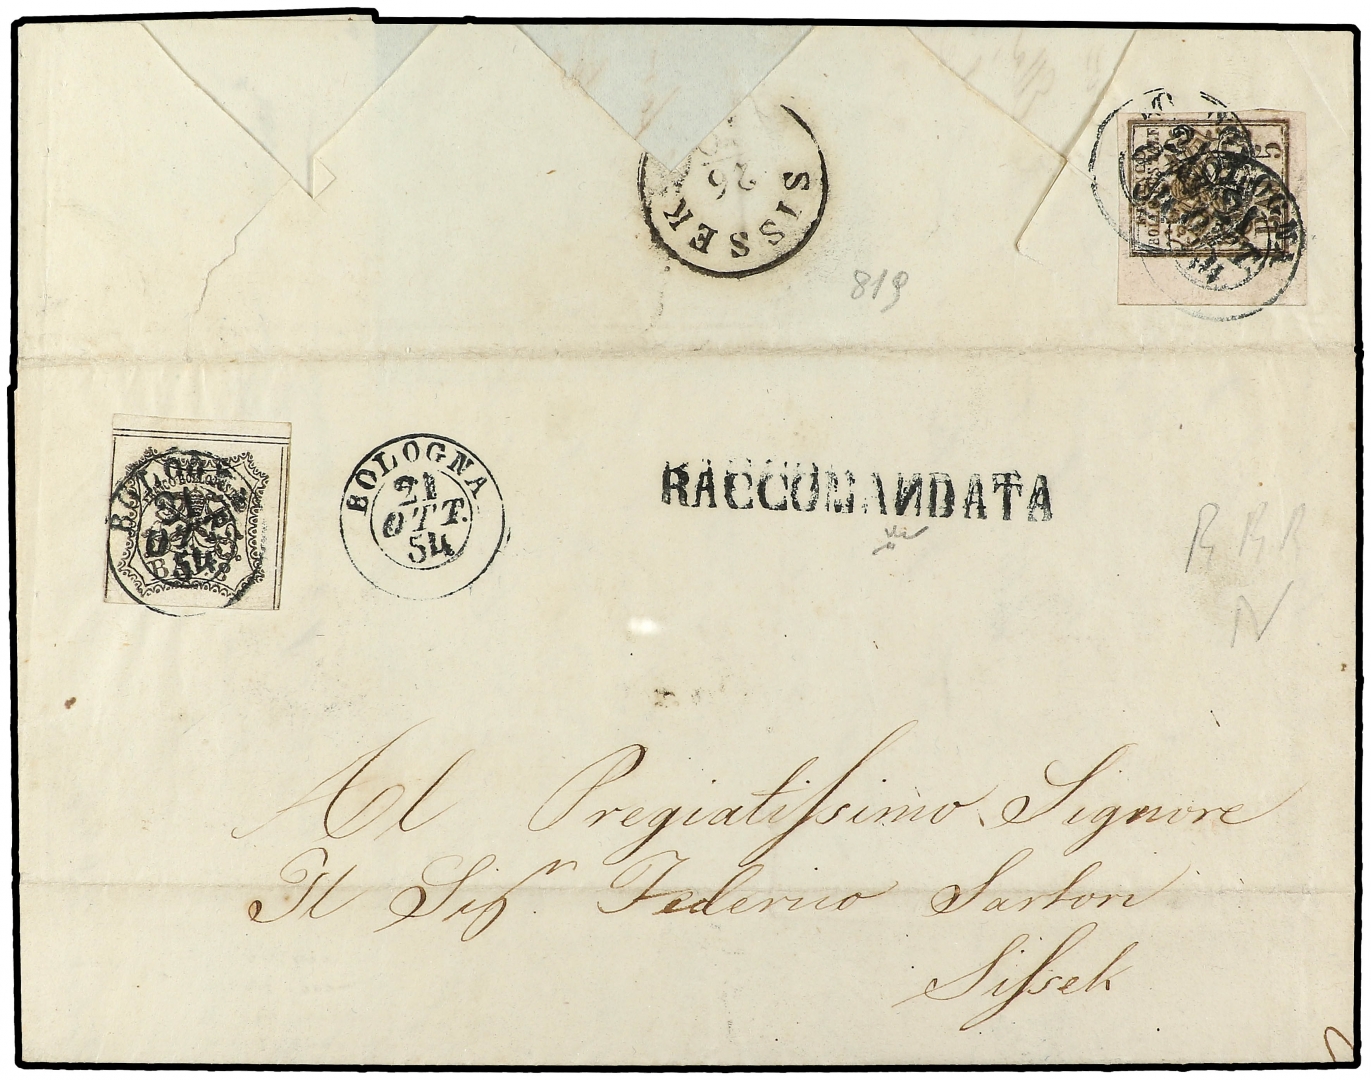 SISSEK
26
819
BOLOGNA
21
OTT.
54
BOLOGNA
21
OTT.
54
RACCOMANDATA
R R R
N
Al Pregiatissimo Signore
Il Sigr. Federico Sartori
Sissek